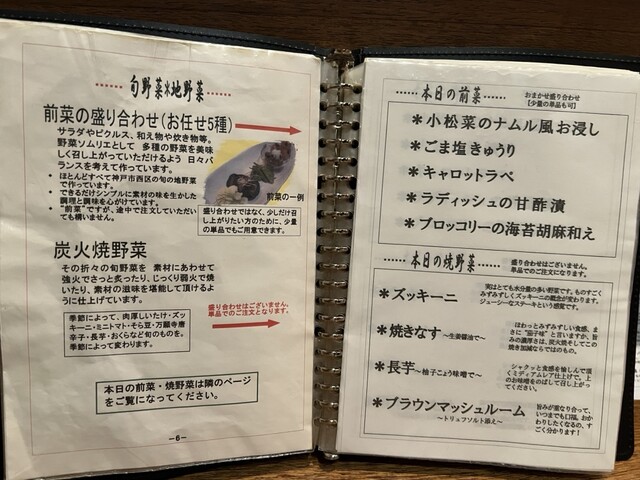 旬野菜米地野菜
前菜の盛り合わせ(お任せ5種)
サラダやピクルス、和え物や炊き物等。
野菜ソムリエとして 多種の野菜を美味
しく召し上がっていただけるよう 日々バ
ランスを考えて作っています。
・ ほとんどすべて神戸市西区の旬の地野菜
で作っています。
・ できるだけシンプルに素材の味を生かした
調理と調味を心がけています。
・ "前菜"ですが、途中で注文していただい
ても構いません。
前菜の一例
盛り合わせではなく、少しだけ召
し上がりたい方のために、少量
の単品でもご用意できます。
炭火焼野菜
その折々の旬野菜を 素材にあわせて
強火でさっと炙ったり、じっくり弱火で焼
いたり、素材の滋味を堪能して頂けるよ
うに仕上げています。
盛り合わせはございません。
単品でのご注文となります。
季節によって、肉厚しいたけ・ズッ
キーニ・ミニトマト・そら豆・万願寺唐
辛子・長芋・おくらなど旬のものを。
季節によって変わります。
本日の前菜・焼野菜は隣のページ
をご覧になってください。
-6-
本日の前菜
おまかせ盛り合わせ
【少量の単品も可】
*小松菜のナムル風お浸し
*ごま塩きゅうり
*キャロットラペ
*ラディッシュの甘酢漬
*ブロッコリーの海苔胡麻和え
本日の焼野菜
盛り合わせはございません。
単品でのご注文になります。
*ズッキーニ
実はとても水分量の多い野菜です。ものすごく
みずみずしくズッキーニの概念が変わります。
ジューシーなステーキという感覚です。
*焼きなす~生姜醤油で~
ほわっとみずみずしい食感、ま
さに"茄子味"と言いますか、旨
みの濃厚さは、炭火焼そしてこ
の焼き加減ならではのもの。
*長芋~柚子こょう味噌で~
シャクッと食感を愉しんで頂
くミディアムレア仕上げで。上
のお味噌をのばして召し上がっ
てください。
*ブラウンマッシュルーム
~トリュフソルト添え~
旨みが重なり合って、
いつまでも口福。おか
わりしたくなるの、す
ごく分かります!